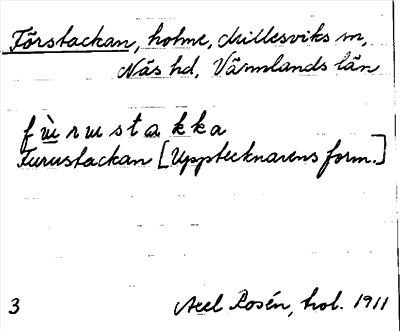 Förstackan, holme, Millesviks sn,
Näs hd, Värmlands län
fɯ̀rɯstakka
Furustackan [Upptecknarens form.]
3 Axel Rosén, hol. 1911